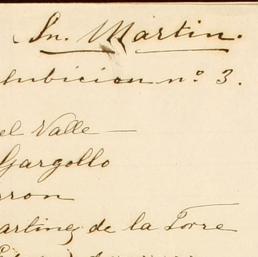 Sn. Martin.
Ambicion no. 3.
el Valle —
Gargollo
rron
artinez de la Torre